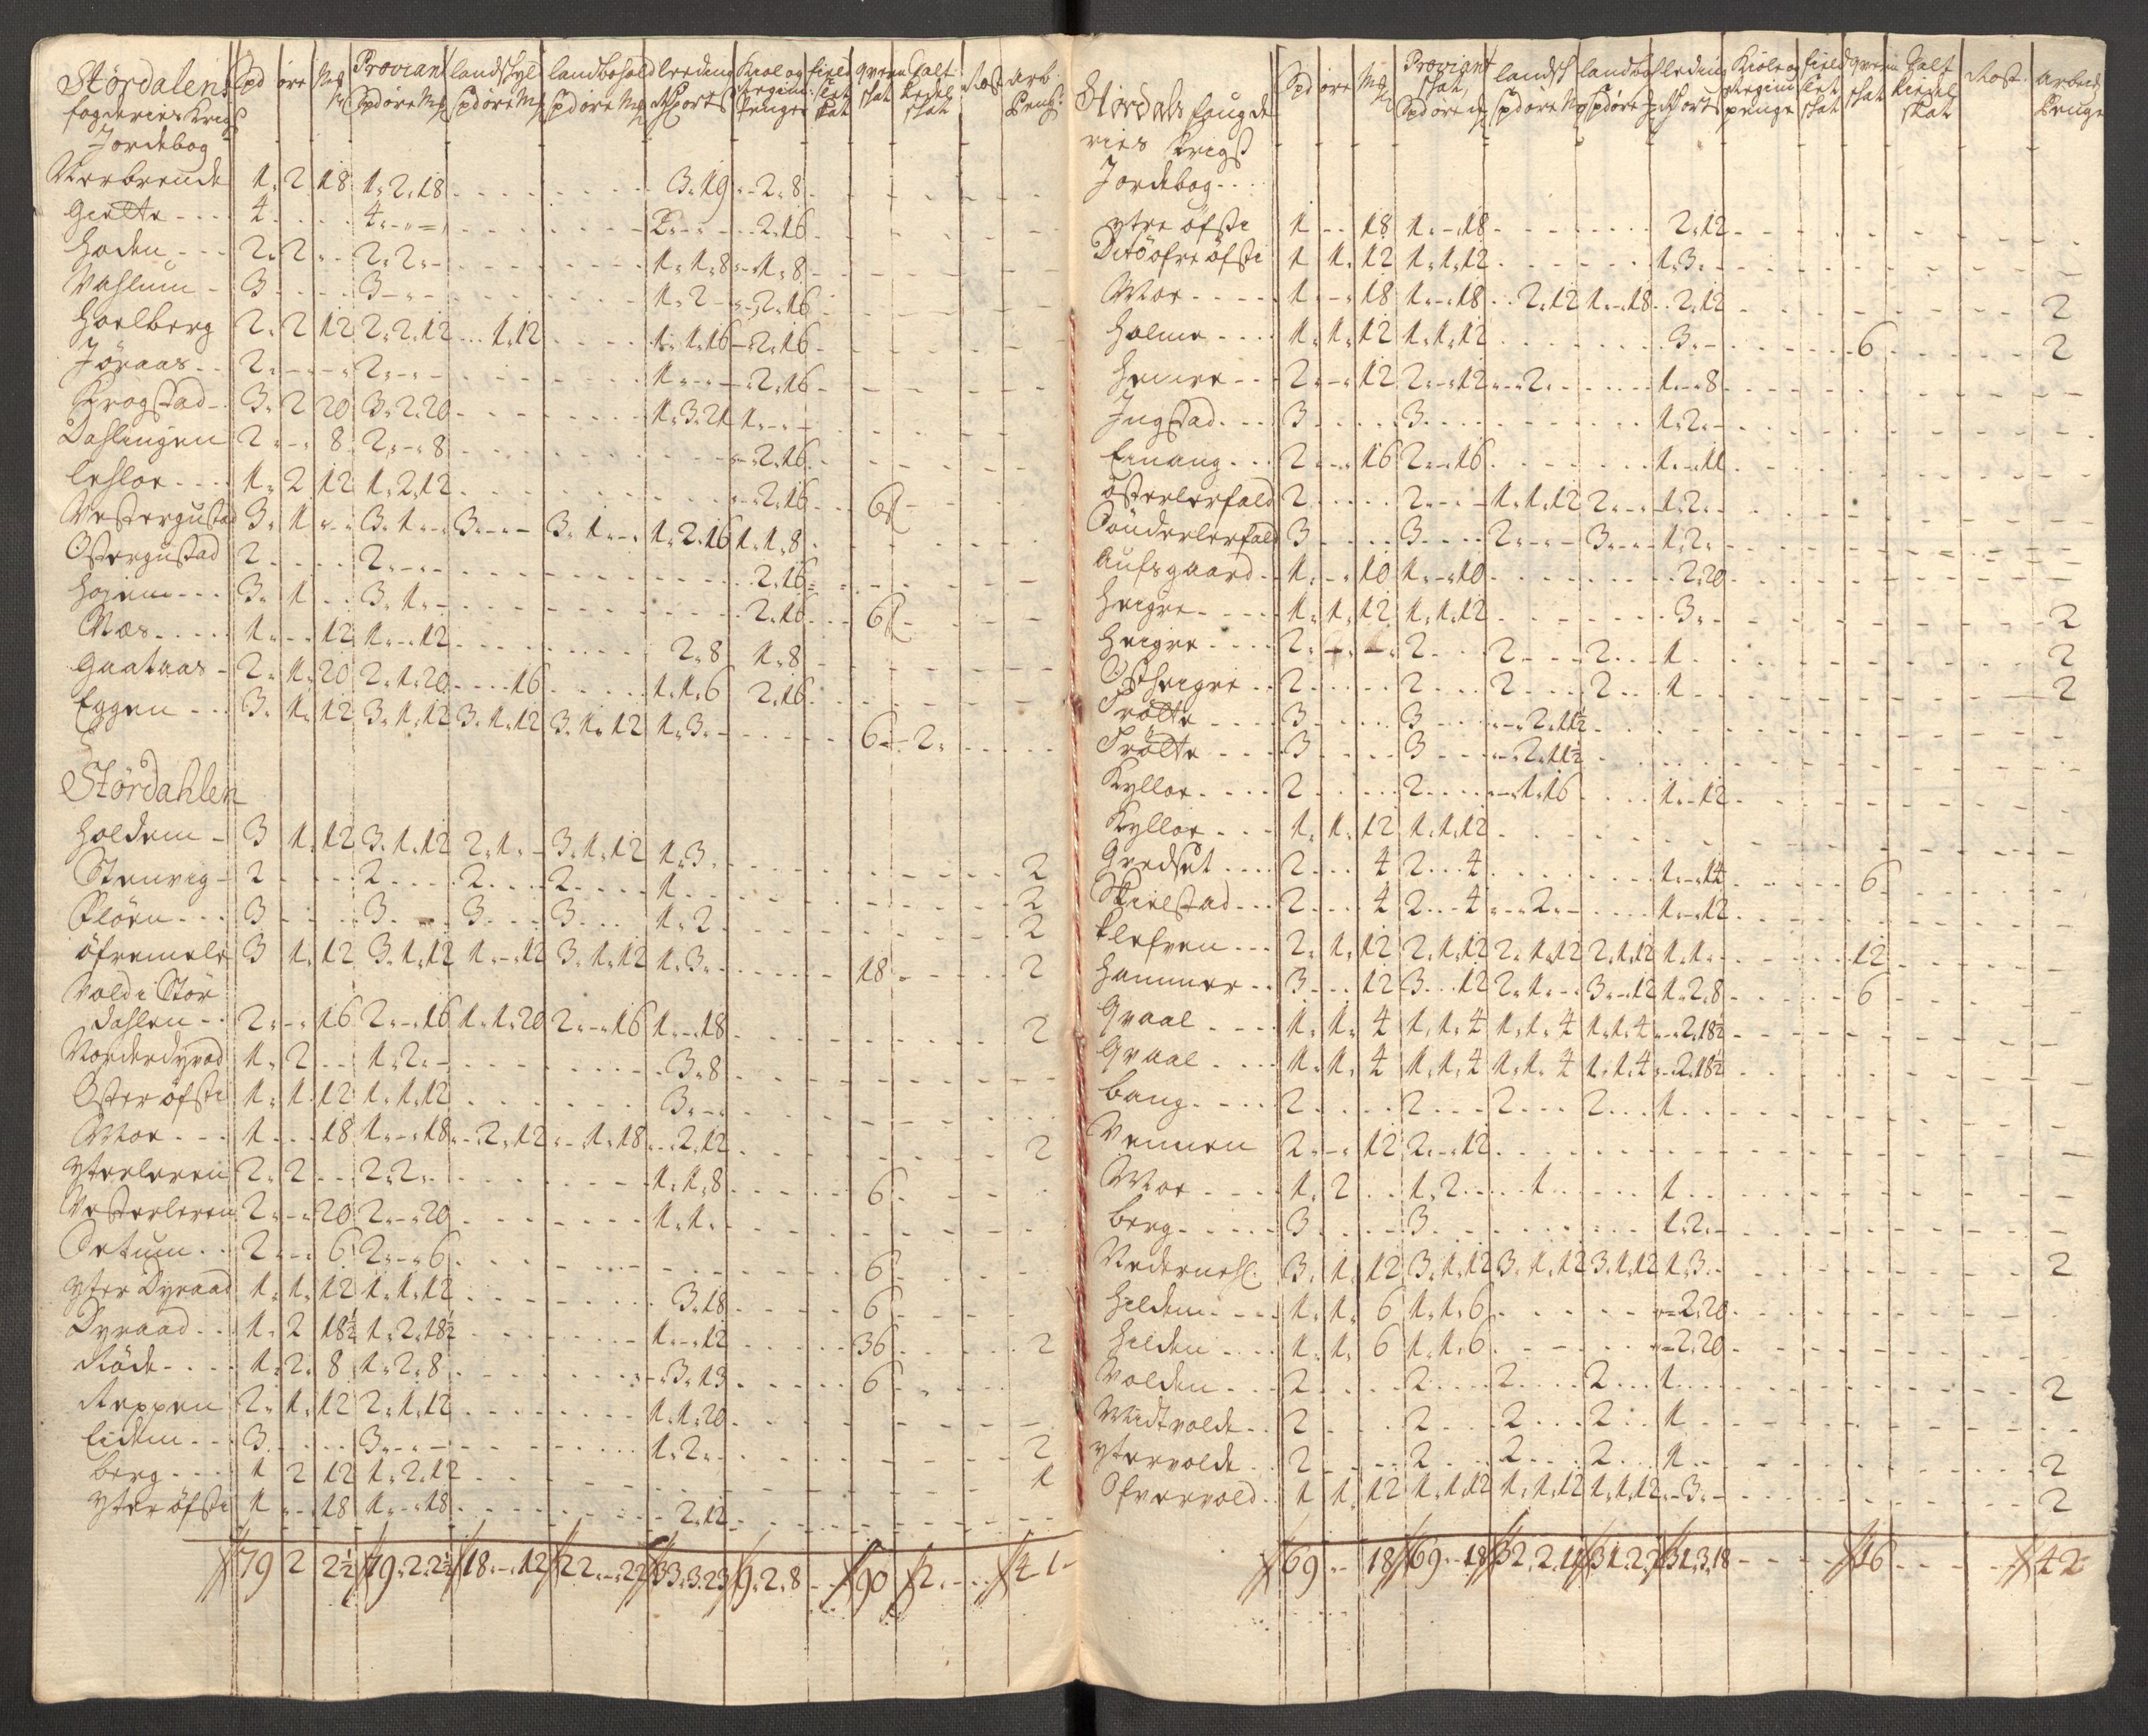 Stördalens Spd öre Mk Proviant landskyl landbohold leeding Kiöl og field qvern Salt Rost arb
fogderies Krigs Spd öre Mk Spd öre Mk Spd öre Mk Mk ort s penger skat skat skat Peng:
Jordebog
1 2 18 1 2 18 3 19 2 8
Gielte 4 4 2 2 16
Hoden 2 2 2 2 1 1 8 1 8
Vahlum 3 3 1 2 2 16
Hoelberg 2 2 12 2 2 12 1 12 1 1 16 2 16
Jöraas 2 2 1 2 16
Krogstad 3 2 20 3 2 20 1 3 21 1
Dahlingen 2 8 2 8 2 16
1 2 12 1 2 12 2 16 6
Vestergustad 3 1 3 1 3 3 1 1 2 16 1 1 8
Ostergustad 2 2 2 16
Hojem 3 1 3 1 2 16 6
Moes 1 12 1 12 2 8 1 8
Gaataas 2 1 20 2 1 20 16 1 1 6 2 16
Eggen 3 1 12 3 1 12 3 1 12 3 1 12 1 3 6 2
Stördahlen
Holdem 3 1 12 3 1 12 2 1 3 1 12 1 3 2
Stenvig 2 2 2 2 1 2
Flören 3 3 3 3 1 2 2
öfremele 3 1 12 3 1 12 1 12 3 1 12 1 3 18 2
Vold i Stör
dahlen 2 16 2 16 1 1 20 2 16 1 18 2
1 2 1 2 3 8
Oster öfsti 1 1 12 1 1 12 3
Moe 1 18 1 18 2 12 1 18 2 12 2
Ytterleren 2 2 2 2 1 1 8 6
Vesterleren 2 20 2 20 1 1
2 6 2 6 6
Ytter Dyraad 1 1 12 1 1 12 3 18 6
Dyraad 1 2 18½ 1 2 18½ 1 12 36 2
Röde 1 2 8 1 2 8 3 13 6
Reppen 2 1 12 2 1 12 1 1 20
Eidem 3 3 1 2 2
Berg 1 2 12 1 2 12 1
Ytter öfsti 1 18 1 18 2 12
79 2 2½ 79 2 2½ 18 12 22 22 33 3 23 9 2 8 90 2
Stördals fougde Spd öre Mk Proviant landsk landbof leding Kiöl og field qvern Salt Rost Arbeids
ries Krigs Spd öre Spd öre Mk Spd öre penge skat skat Kiedel skat Penge
Jordebog
ytre öfsti 1 18 1 18 2 12
Ditö öfre öfsti 1 1 12 1 1 12 1 3
Moe 1 18 1 18 2 12 1 18 2 12 2
Holme 1 1 12 1 1 12 3 6 2
Hemre 2 12 2 12 2 1 8
Ingstad 3 3 1 2
Einang 2 16 2 16 1 11
österlerfald 2 2 1 1 12 2 1 2
Sönderlerfald 3 3 2 3 1 2
Aufsgaard 1 10 1 10 2 20
Heigre 1 1 12 1 1 12 3 2
Heigre 2 2 2 2 1 2
Ostheigre 2 2 2 2 1 2
Trölte 3 3 2 11½
Trölte 3 3 2 11½
Kylloe 2 2 1 16 1 12
Kylloe 1 1 12 1 1 12
Gredset 2 4 2 4 1 14 6
Skielstad 2 4 2 4 2 1 12
Klefven 2 1 12 2 1 12 2 1 12 2 1 12 1 1 12
Hammer 3 12 3 12 2 1 3 12 1 2 8 6
Graal 1 1 4 1 1 4 1 1 4 1 1 4 2 18½
Graal 1 1 4 1 1 4 1 1 4 1 1 4 2 18½
Bang 2 2 2 2 1
Vennen 2 12 2 12
Moe 1 2 1 2 1 1
Berg 3 3 1 2
Nedernesl. 3 1 12 3 1 12 3 1 12 3 1 12 1 3 2
Hildem 1 1 6 1 1 6 2 20
Hilden 1 1 6 1 1 6 2 20
Volden 2 2 2 2 1 2
Midtvolde 2 2 2 2 1
Ytervolde 2 2 2 2 1 2
Ofvervold 1 1 12 1 1 12 1 1 12 1 1 12 3 2
69 18 69 18 32 2 31 3 18 42